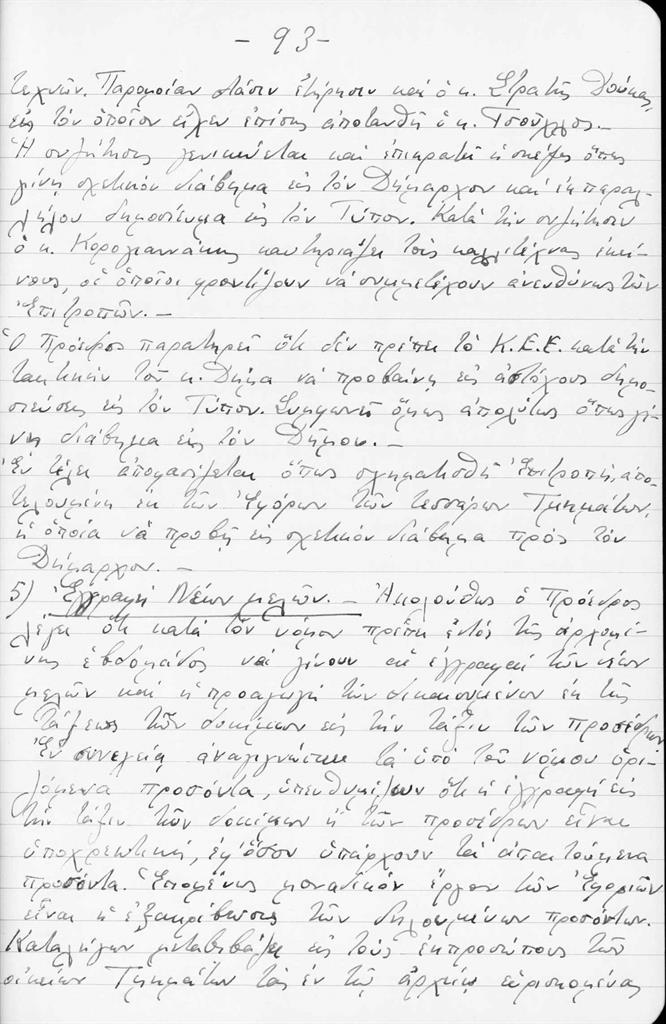 - 93 -
τεχνῶν. Παρομοίαν στάσιν ἐτήρησεν καί ὁ κ. Στρατῆς Δούκας,
εἰς τόν ὁποῖον εἶχεν ἐπίσης ἀποτανθῆ ὁ κ. Τσούχλος.-
Ἡ συζήτησις γενικεύεται καί ἐπικρατεῖ ἡ σκέψις ὅπως
γίνῃ σχετικόν διάβημα εἰς τόν Δήμαρχον καί ἐκ παραλ-
λήλου δημοσίευμα εἰς τόν Τύπον. Κατά τήν συζήτησιν
ὁ κ. Κορογιαννάκης καυτηριάζει τούς καλλιτέχνας ἐκεί-
νους, οἱ ὁποῖοι φροντίζουν νά συμμετέχουν ἀνευθύνως τῶν
Ἐπιτροπῶν.-
Ὁ Πρόεδρος παρατηρεῖ ὅτι δέν πρέπει τό Κ.Ε.Ε. κατά τήν
τακτικήν τοῦ κ. Δήμα νά προβαίνῃ εἰς ἀστόχους δημο-
σιεύσεις εἰς τόν Τύπον. Συμφωνεῖ ὅμως ἀπολύτως ὅπως γί-
νῃ διάβημα εἰς τόν Δῆμον.-
Ἐν τέλει ἀποφασίζεται ὅπως σχηματισθῆ Ἐπιτροπή, ἀπο-
τελουμένη ἐκ τῶν Ἐφόρων τῶν τεσσάρων Τμημάτων,
ἡ ὁποία νά προβῇ εἰς σχετικόν διάβημα πρός τόν
Δήμαρχον.-
5) Ἐγγραφή Νέων μελῶν.- Ἀκολούθως ὁ Πρόεδρος
λέγει ὅτι κατά τόν νόμον πρέπει ἐντός τῆς ἀρχομέ-
νης ἑβδομάδος νά γίνουν αἱ ἐγγραφαί τῶν νέων
μελῶν καί ἡ προαγωγή τῶν δικαιουμένων ἐκ τῆς
τάξεως τῶν δοκίμων εἰς τήν τάξιν τῶν προσέδρων
Ἐν συνεχείᾳ ἀναγιγνώσκει τά ὑπό τοῦ νόμου ὁρι-
ζόμενα προσόντα, ὑπενθυμίζων ὅτι ἡ ἐγγραφή εἰς
τήν τάξιν τῶν δοκίμων ἤ τῶν προσέδρων εἶναι
ὑποχρεωτική, ἐφ' ὅσον ὑπάρχουν τά ἀπαιτούμενα
προσόντα. Ἑπομένως μοναδικόν ἔργον τῶν Ἐφοριῶν
εἶναι ἡ ἐξακρίβωσις τῶν δηλουμένων προσόντων.
Καταλήγων μεταβιβάζει εἰς τούς ἐκπροσώπους τῶν
οἰκείων Τμημάτων τάς ἐν τῷ ἀρχείῳ εὑρισκομένας